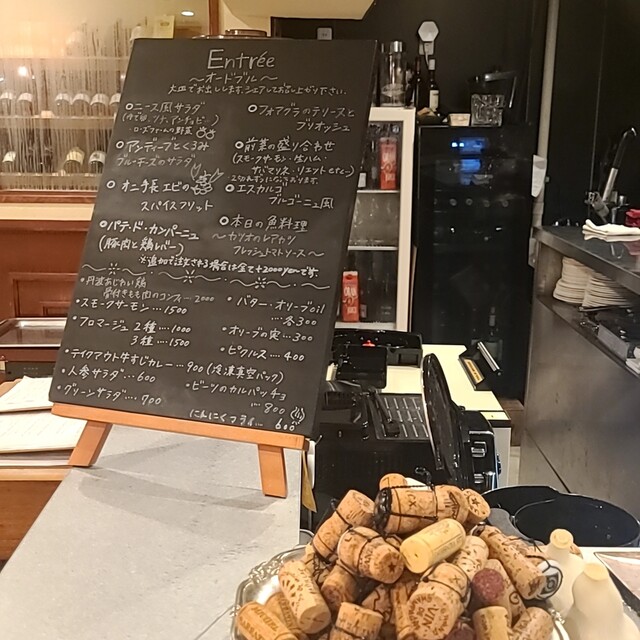 Entrée
～オードブル～
大皿でお出しします。シェアしてお召し上がり下さい。
ニース風サラダ
ローズファームの野菜
アンディーブとくるみ
ブルーチーズのサラダ
オニ手長エビの
スパイスフリット
パテ・ド・カンパーニュ
(豚肉と鶏レバー)
フォアグラのテリーヌと
ブリオッシュ
前菜の盛り合わせ
(スモークサーモン・生ハム・
エスカルゴ
ブルゴーニュ風
本日の魚料理
～カツオのレアカツ
フレッシュトマトソース～
※追加で注文される場合は全て+2000yenです
・丹波あじわい鶏
骨付きもも肉のコンフィ…2000
・スモークサーモン…1500
・フロマージュ 2種…1000
3種…1500
・バター・オリーブoil
…各300
・オリーブの実…300
・ピクルス…400
・テイクアウト牛すじカレー…900(冷凍真空パック)
・人参サラダ…600
・グリーンサラダ…700
・ビーツのカルパッチョ
…800
にんにくフライ…600